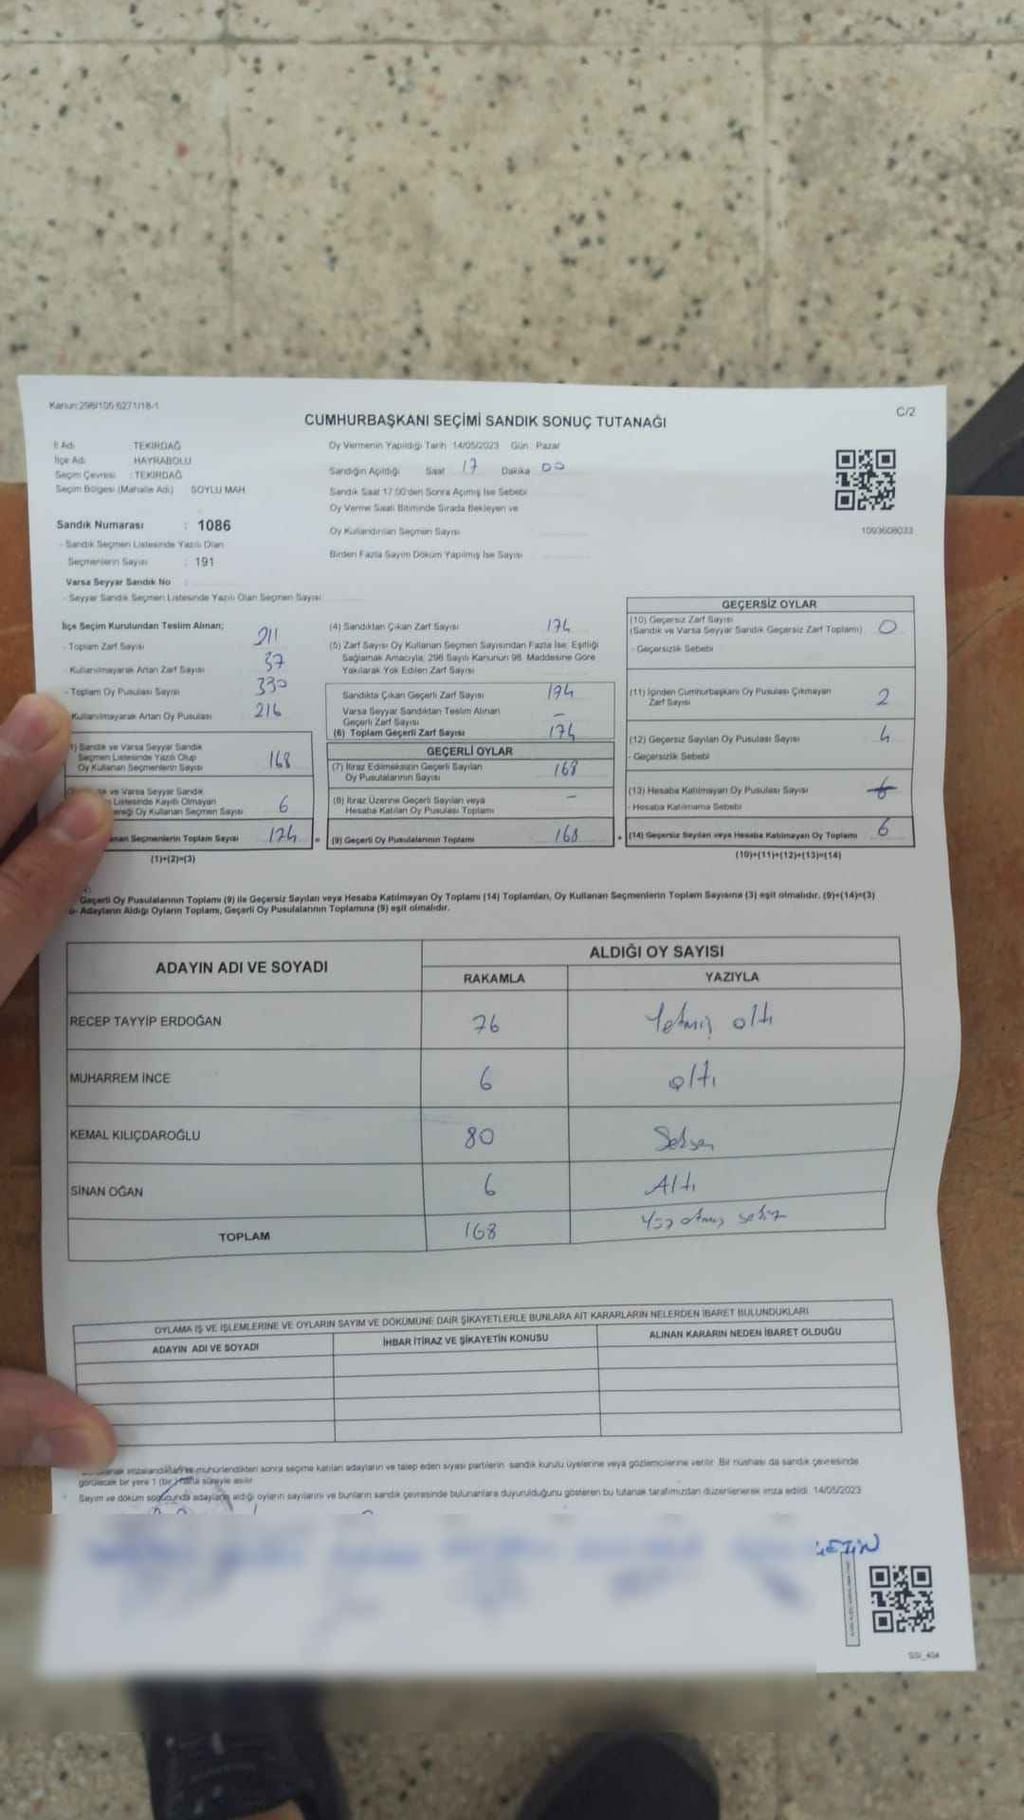 Kanun:298/105 6271/18-1
C/2
CUMHURBAŞKANI SEÇİMİ SANDIK SONUÇ TUTANAĞI
İl Adı : TEKİRDAĞ
İlçe Adı : HAYRABOLU
Seçim Çevresi : TEKİRDAĞ
Seçim Bölgesi (Mahalle Adı) SOYLU MAH
Sandık Numarası : 1086
- Sandık Seçmen Listesinde Yazılı Olan
Seçmenlerin Sayısı : 191
Varsa Seyyar Sandık No
- Seyyar Sandık Seçmen Listesinde Yazılı Olan Seçmen Sayısı:
Oy Vermenin Yapıldığı Tarih 14/05/2023 Gün : Pazar
Sandığın Açıldığı Saat 17 Dakika 00
Sandık Saat 17:00'den Sonra Açılmış İse Sebebi
Oy Verme Saati Bitiminde Sırada Bekleyen ve
Oy Kullandırılan Seçmen Sayısı
Birden Fazla Sayım Döküm Yapılmış İse Sayısı
1093608033
İlçe Seçim Kurulundan Teslim Alınan;
- Toplam Zarf Sayısı 211
- Kullanılmayarak Artan Zarf Sayısı 37
- Toplam Oy Pusulası Sayısı 330
Kullanılmayarak Artan Oy Pusulası 216
) Sandık ve Varsa Seyyar Sandık
Seçmen Listesinde Yazılı Olup
Oy Kullanan Seçmenlerin Sayısı 168
ve Varsa Seyyar Sandık
Listesinde Kayıtlı Olmayan
Oy Kullanan Seçmen Sayısı 6
Seçmenlerin Toplam Sayısı 174
(1)+(2)=(3)
(4) Sandıktan Çıkan Zarf Sayısı 174
(5) Zarf Sayısı Oy Kullanan Seçmen Sayısından Fazla İse; Eşitliği
Sağlamak Amacıyla, 298 Sayılı Kanunun 98. Maddesine Göre
Yakılarak Yok Edilen Zarf Sayısı
Sandıkta Çıkan Geçerli Zarf Sayısı 174
Varsa Seyyar Sandıktan Teslim Alınan
Geçerli Zarf Sayısı –
(6) Toplam Geçerli Zarf Sayısı 174
GEÇERLİ OYLAR
(7) İtiraz Edilmeksizin Geçerli Sayılan
Oy Pusulalarının Sayısı 168
(8) İtiraz Üzerine Geçerli Sayılan veya
Hesaba Katılan Oy Pusulası Toplamı –
= (9) Geçerli Oy Pusulalarının Toplamı 168
GEÇERSİZ OYLAR
(10) Geçersiz Zarf Sayısı
(Sandık ve Varsa Seyyar Sandık Geçersiz Zarf Toplamı) 0
- Geçersizlik Sebebi
(11) İçinden Cumhurbaşkanı Oy Pusulası Çıkmayan
Zarf Sayısı 2
(12) Geçersiz Sayılan Oy Pusulası Sayısı 4
- Geçersizlik Sebebi
(13) Hesaba Katılmayan Oy Pusulası Sayısı
- Hesaba Katılmama Sebebi
+ (14) Geçersiz Sayılan veya Hesaba Katılmayan Oy Toplamı 6
(10)+(11)+(12)+(13)=(14)
Geçerli Oy Pusulalarının Toplamı (9) ile Geçersiz Sayılan veya Hesaba Katılmayan Oy Toplamı (14) Toplamları, Oy Kullanan Seçmenlerin Toplam Sayısına (3) eşit olmalıdır. (9)+(14)=(3)
- Adayların Aldığı Oyların Toplamı, Geçerli Oy Pusulalarının Toplamına (9) eşit olmalıdır.
ADAYIN ADI VE SOYADI ALDIĞI OY SAYISI
RAKAMLA YAZIYLA
RECEP TAYYİP ERDOĞAN 76 Yetmiş altı
MUHARREM İNCE 6 altı
KEMAL KILIÇDAROĞLU 80 Seksen
SİNAN OĞAN 6 Altı
TOPLAM 168 Yüz atmış sekiz
OYLAMA İŞ VE İŞLEMLERİNE VE OYLARIN SAYIM VE DÖKÜMÜNE DAİR ŞİKAYETLERLE BUNLARA AİT KARARLARIN NELERDEN İBARET BULUNDUKLARI
ADAYIN ADI VE SOYADI İHBAR İTİRAZ VE ŞİKAYETİN KONUSU ALINAN KARARIN NEDEN İBARET OLDUĞU
imzalandıktan ve mühürlendikten sonra seçime katılan adayların ve talep eden siyasi partilerin sandık kurulu üyelerine veya gözlemcilerine verilir. Bir nüshası da sandık çevresinde
görülecek bir yere 1 (bir) hafta süreyle asılır.
Sayım ve döküm sonucunda adayların aldığı oyların sayılarını ve bunların sandık çevresinde bulunanlara duyurulduğunu gösteren bu tutanak tarafımızdan düzenlenerek imza edildi. 14/05/2023